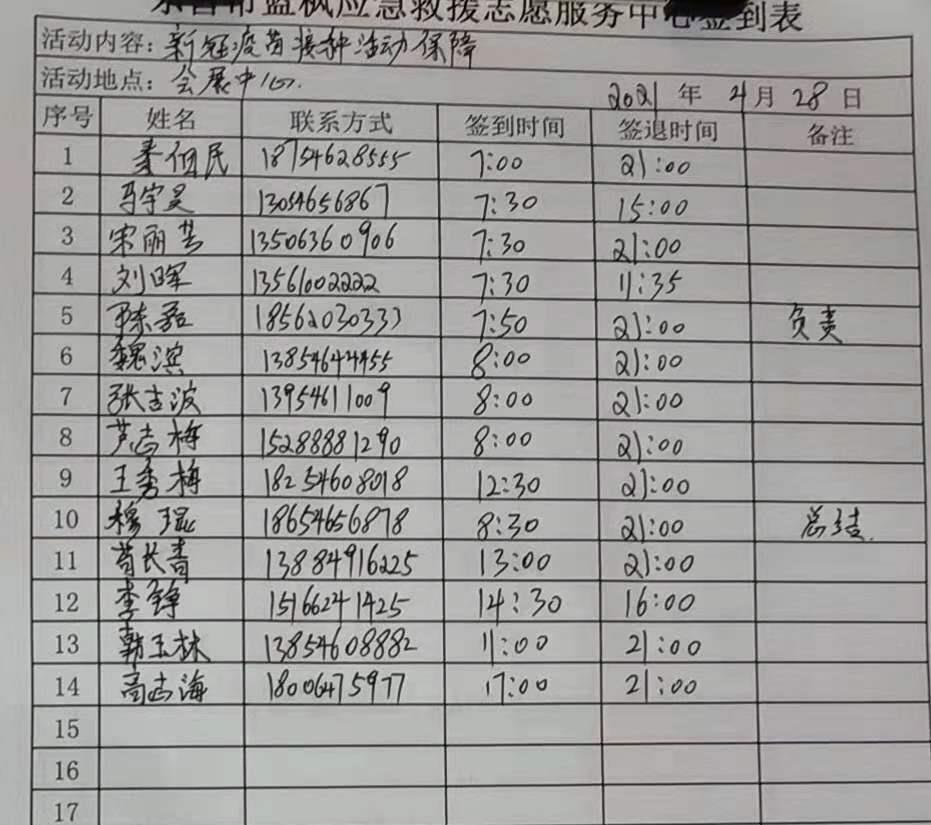 东营市蓝枫应急救援志愿服务中心签到表
活动内容：新冠疫苗接种活动保障
活动地点：会展中心.
2021 年 4月 28 日
序号 姓名 联系方式 签到时间 签退时间 备注
1 秦伯民 18754628555 7:00 21:00
2 马宇昊 13054656867 7:30 15:00
3 宋丽芸 13506360906 7:30 21:00
4 刘晖 13561002222 7:30 11:35
5 陈磊 18562030333 7:50 21:00 负责
6 魏滨 13854644455 8:00 21:00
7 张吉波 13954611009 8:00 21:00
8 芦志梅 15288881290 8:00 21:00
9 王秀梅 18254608018 12:30 21:00
10 穆琨 18654656878 8:30 21:00 总结.
11 苟长青 13884916225 13:00 21:00
12 李铮 15166241425 14:30 16:00
13 韩玉林 13854608882 11:00 21:00
14 高志海 18006475977 17:00 21:00
15
16
17